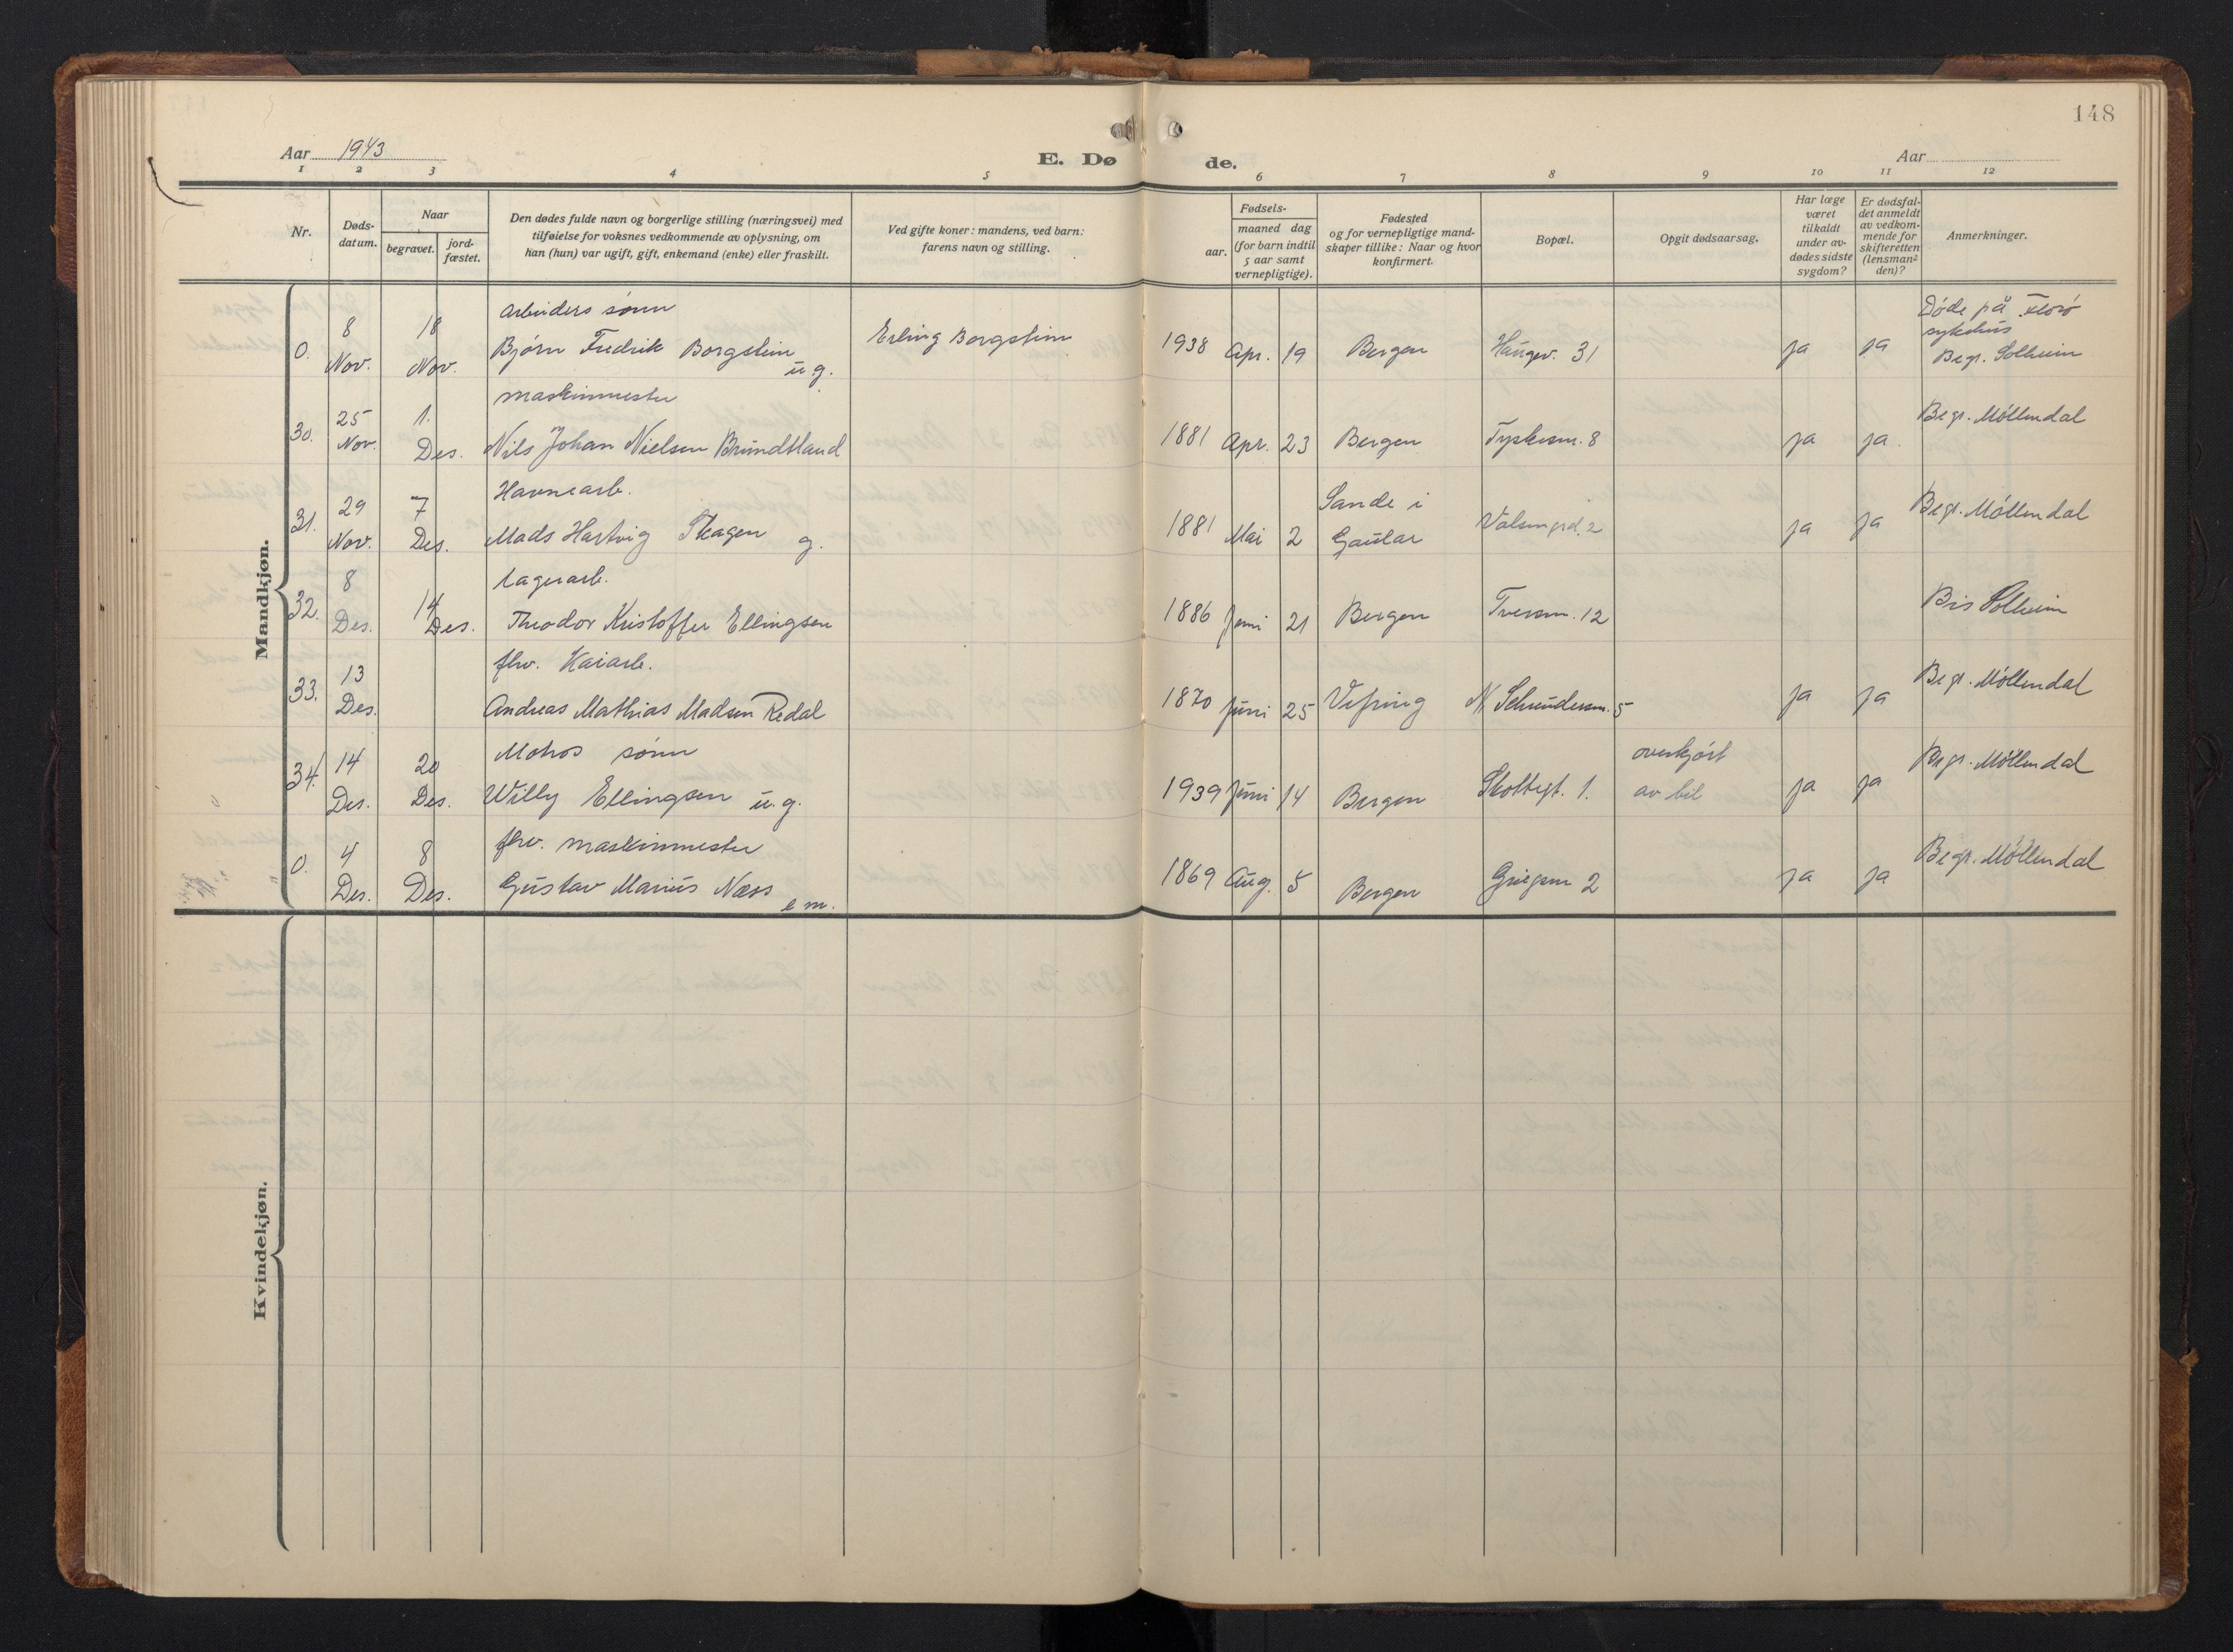 148
Aar 1943
E. Døde.
Aar
1 2 3 4 5 6 7 8 9 10 11 12
Nr.
Døds-
datum.
Naar
begravet.
jord-
fæstet.
Den dødes fulde navn og borgerlige stilling (næringsvei) med
tilføielse for voksnes vedkommende av oplysning, om
han (hun) var ugift, gift, enkemand (enke) eller fraskilt.
Ved gifte koner: mandens, ved barn:
farens navn og stilling.
Fødsels-
aar.
maaned dag
(for barn indtil
5 aar samt
vernepligtige).
Fødested
og for vernepligtige mand-
skaper tillike: Naar og hvor
konfirmert.
Bopæl.
Opgit dødsaarsag.
Har læge
været
tilkaldt
under av-
dødes sidste
sygdom?
Er dødsfal-
det anmeldt
av vedkom-
mende for
skifteretten
(lensman-
den)?
Anmerkninger.
Mandkjøn.
arbeiders sønn Døde på Florø
8 18 sykehus
0. Nov. Nov. Bjørn Fredrik Borgstein u.g. Erling Borgstein 1938 Apr. 19 Bergen Haugev. 31 ja ja Begr. Solheim
maskinmester
25 1. Begr. Møllendal
30. Nov. Des. Nils Johan Nielsen Brundtland 1881 Apr. 23 Bergen Tyskesm. 8 ja ja
Havnearb.
29 7 Sande i Begr. Møllendal
31. Nov. Des. Mads Hartvig Skagen g. 1881 Mai 2 Gaular ja ja
Lagerarb.
8 14 Bis Solheim
32. Des. Des. Theodor Kristoffer Ellingsen 1886 Juni 21 Bergen Tversm. 12
fhv. Kaiarb.
13 Begr. Møllendal
33. Des. Andreas Mathias Madsen Redal 1870 Juni 25 Vefring 5 ja ja
Motros sønn overkjørt
14 20 Begr. Møllendal
34. Des. Des. Willy Ellingsen u.g. 1939 Juni 14 Bergen Skottegt. 1. av bil ja ja
fhv. maskinmester
4 8 Begr. Møllendal
0. Des. Des. Gustav Marius Næss e.m. 1869 Aug. 5 Bergen Griegsm 2 ja ja
Kvindekjøn.